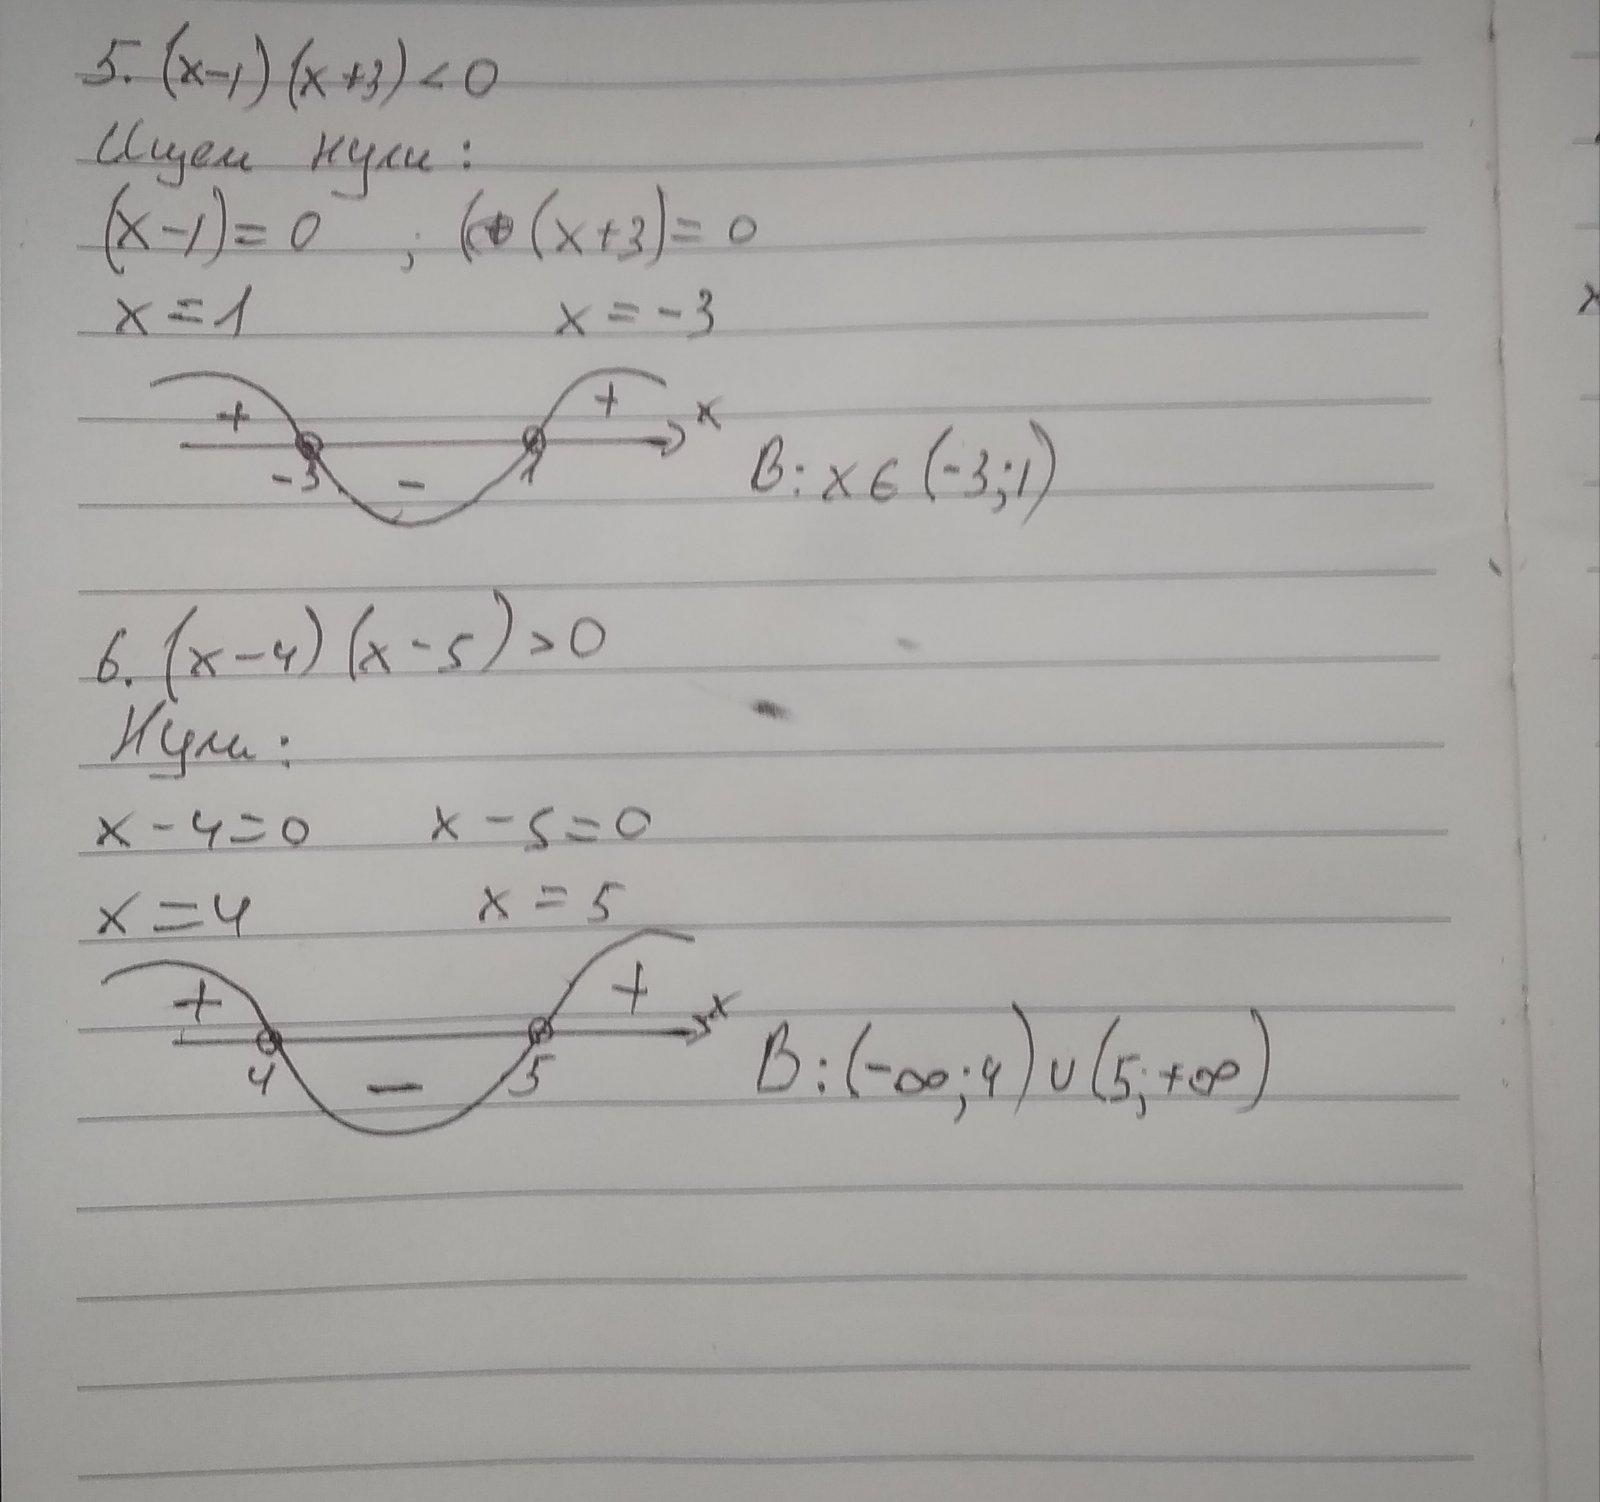 5. (x-1)(x+3)<0
Ищем нули:
(x-1)=0 ; (x+3)=0
x=1 x=-3
+ + x
-3 - 1 В: x∈(-3;1)
6. (x-4)(x-5)>0
Нули:
x-4=0 x-5=0
x=4 x=5
+ + x
4 - 5 В: (-∞;4)∪(5;+∞)